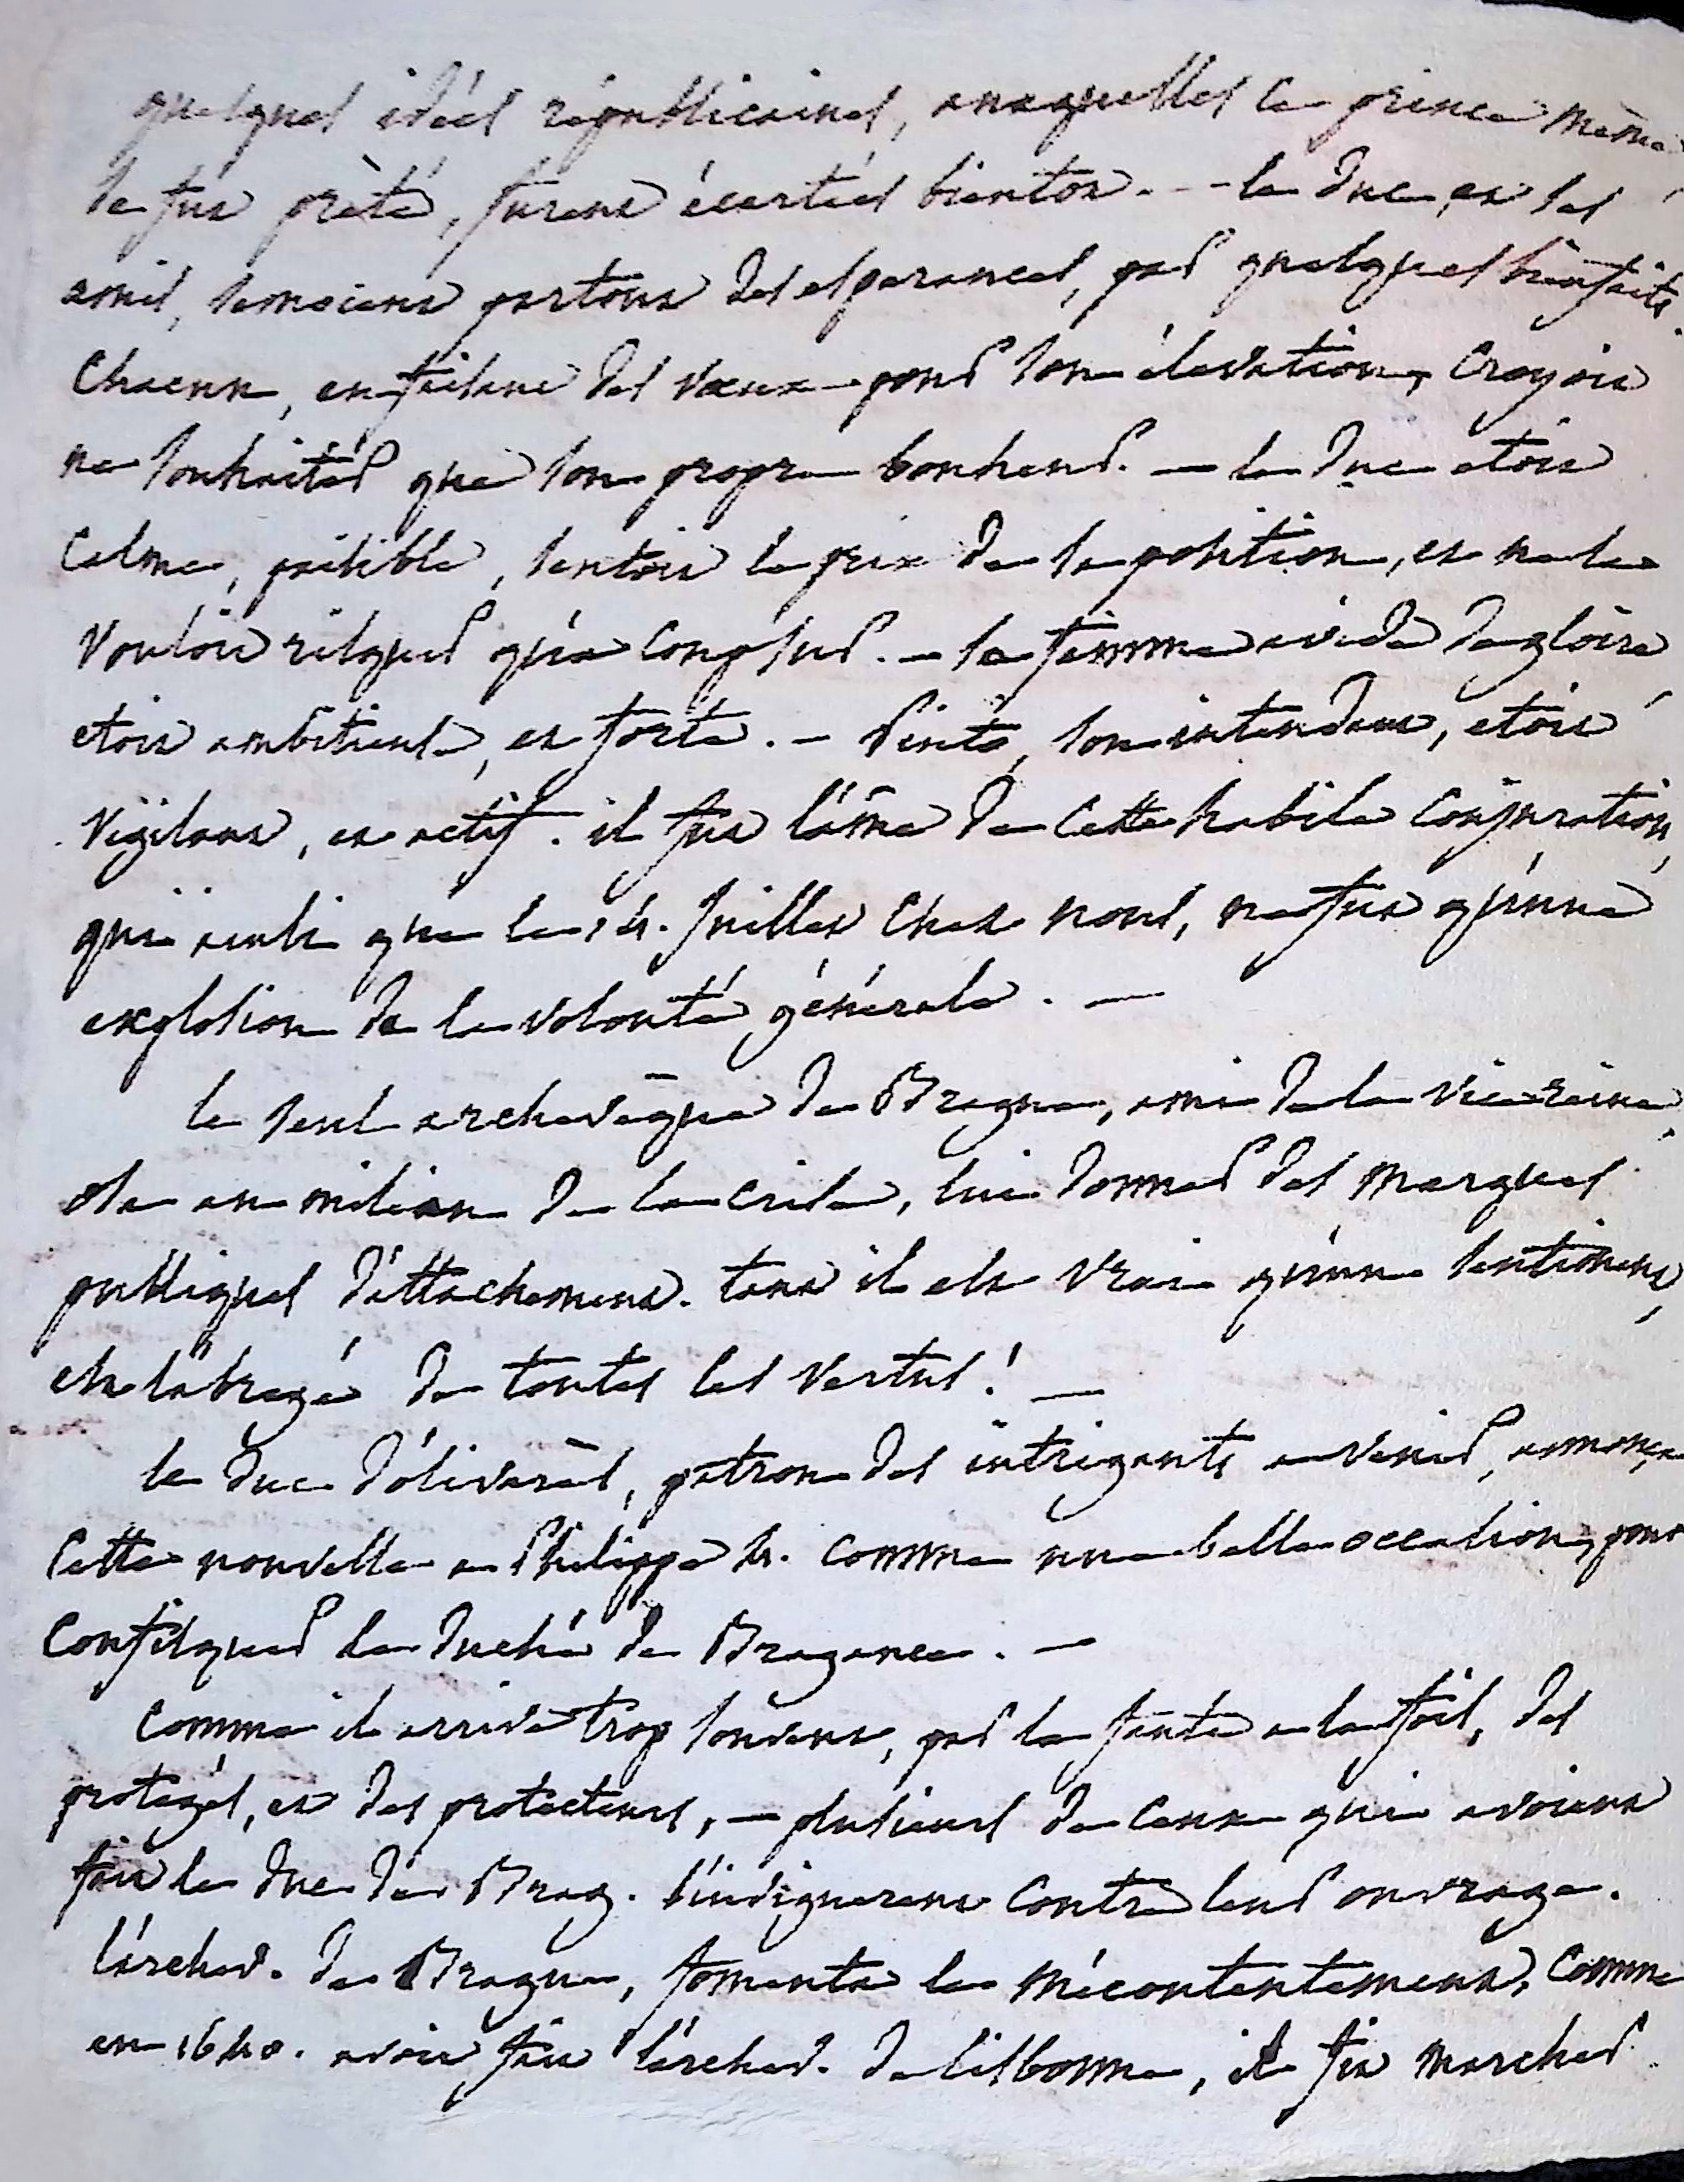 quelques idées républicaines, auxquelles le prince même
se fut prêté, furent écartées bientot. - - le duc, et ses
amis, semoient partout des esperances, par quelques bienfaits.
Chacun, en faisant des vœux pour son élevation, croyoit
ne souhaiter que son propre bonheur. — le duc etoit
calme, paisible, sentoit le prix de sa position, et ne la
vouloit risquer qu'a coup sur. — sa femme avide de gloire
etoit ambitieuse, et forte. — Pinto, son intendant, etoit
vigilant, et actif. il fut l'âme de cette habile conjuration,
qui aussi que le 14. Juillet chez nous, ne fut qu'une
explosion de la volonté générale. —
le seul archevêque de Brague, ami de la vice-reine,
osa au milieu de la crise, lui donner des marques
publiques d'attachement. tant il est vrai qu'un sentiment,
est l'abregé de toutes les vertus! —
le duc d'olivarès, patron des intrigants a venir, annonça
cette nouvelle a Philippe 4. comme une belle occasion, pour
confisquer le duché de Bragance. —
Comme il arrive trop souvent, par la faute a la fois, des
protégés, et des protecteurs, — plusieurs de ceux qui avoient
fait le duc de Brag. s'indignerent contre leur ouvrage.
l'archev. de Brague, fomenta le mécontentement, comme
en 1640. avoit fait l'archev. de lisbonne, il fit marcher